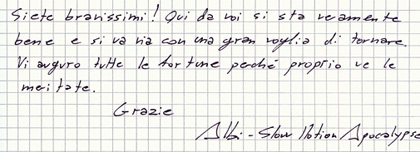 Siete bravissimi! Qui da voi si sta veramente
bene e si va via con una gran voglia di tornare.
Vi auguro tutte le fortune perché proprio ve le
meritate.
Grazie
Albi - Slow Motion Apocalypse